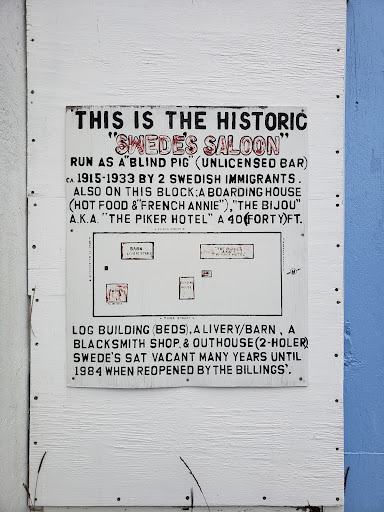 THIS IS THE HISTORIC
"SWEDE'S SALOON"
RUN AS A "BLIND PIG" (UNLICENSED BAR)
CA 1915-1933 BY 2 SWEDISH IMMIGRANTS.
ALSO ON THIS BLOCK; A BOARDING HOUSE
(HOT FOOD & "FRENCH ANNIE"), "THE BIJOU"
A.K.A. "THE PIKER HOTEL" A 40 (FORTY) FT.
BARN
LOG BUILDING (BEDS), A LIVERY/BARN, A
BLACKSMITH SHOP, & OUTHOUSE (2-HOLER)
SWEDE'S SAT VACANT MANY YEARS UNTIL
1984 WHEN REOPENED BY THE BILLINGS'.